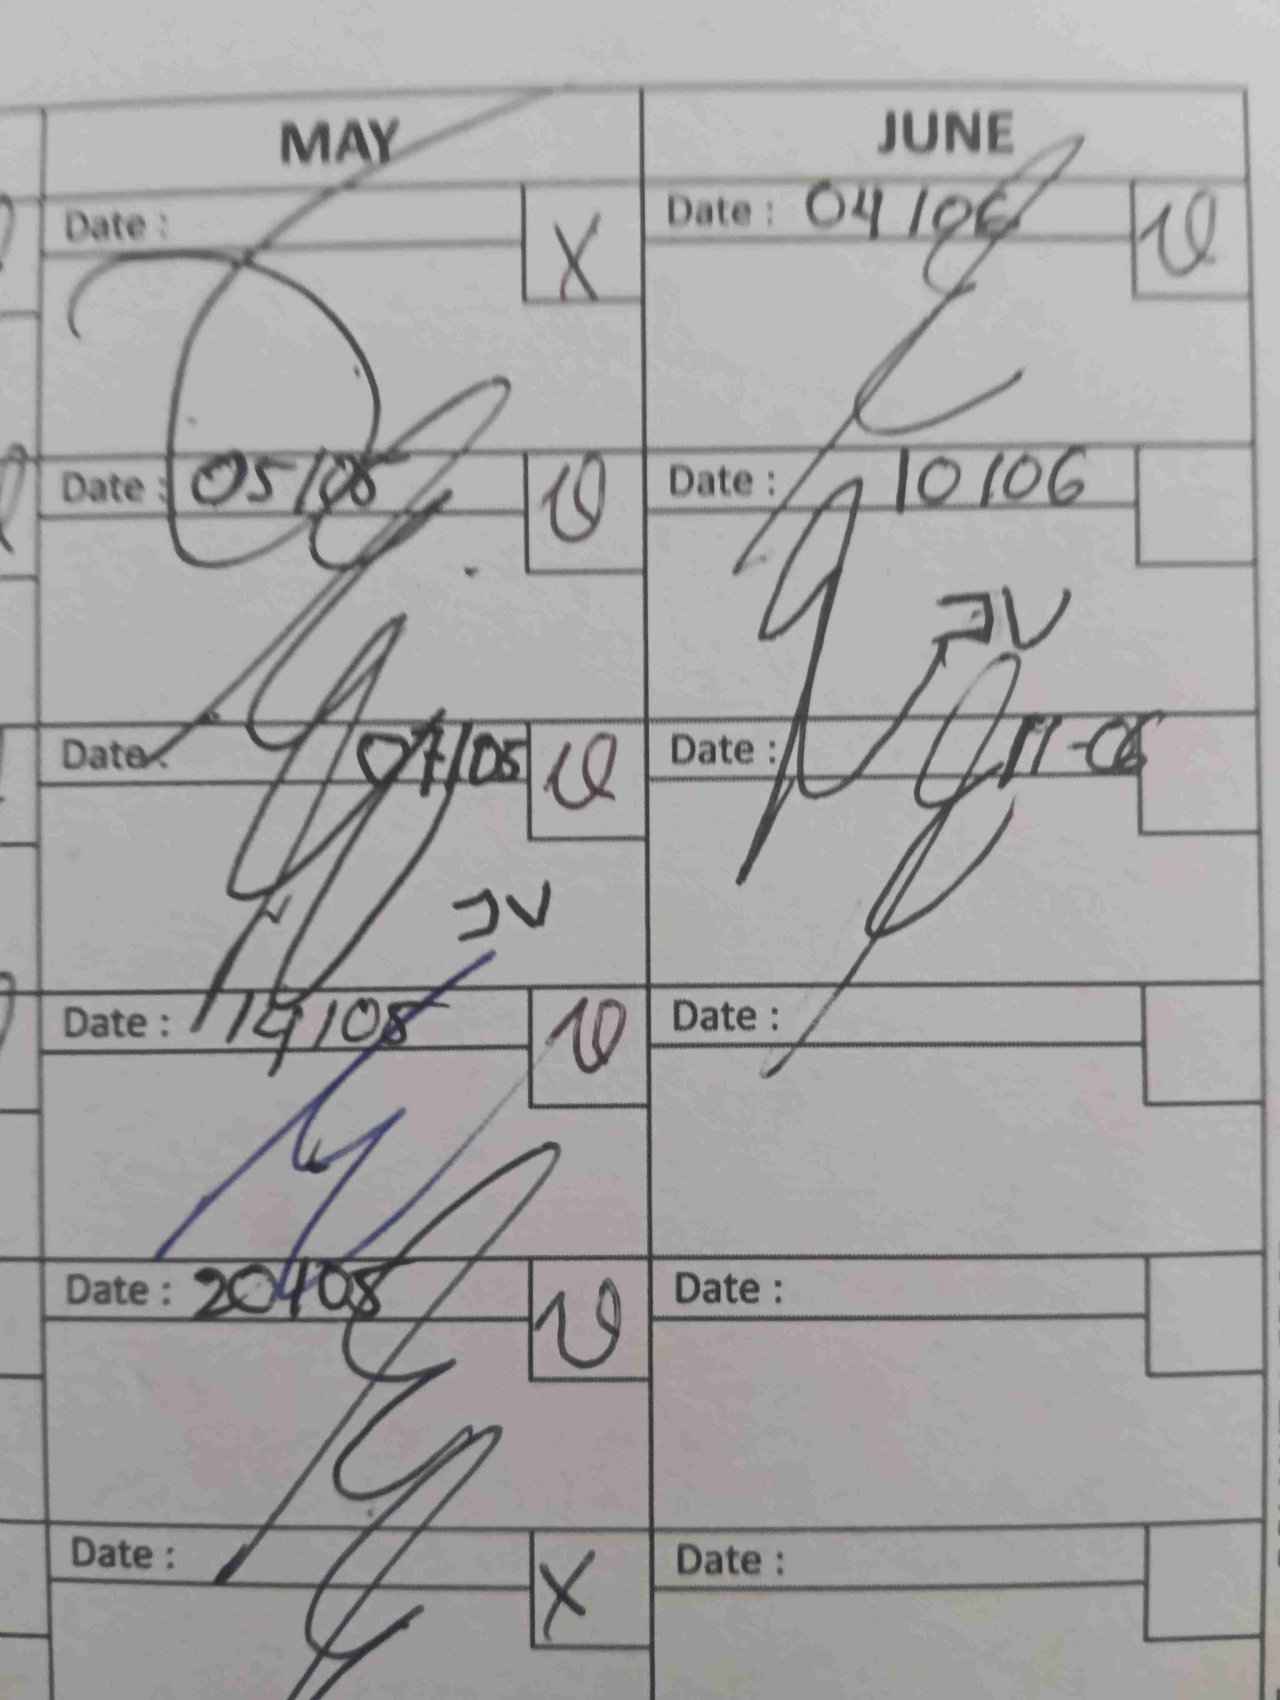 MAY
Date :
X
Date : 05/05
Date : 07/05
JV
Date : 14/05
Date : 20/05
Date :
X
JUNE
Date : 04/06
Date : 10/06
JV
Date : 11-06
Date :
Date :
Date :